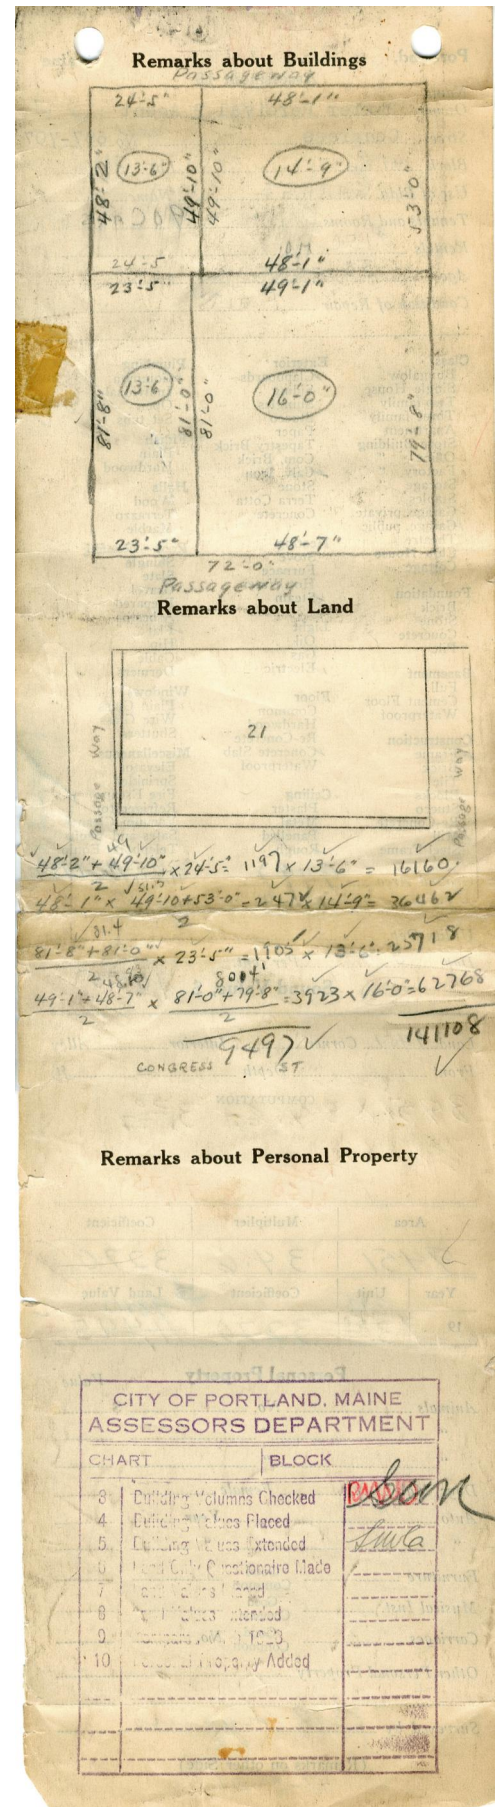 Remarks about Buildings
Passageway
24'-5" 48'-1"
48'-2" 13'-6" 49'-10" 49'-10" 14'-9" 53'-0"
24-5 48'-1"
23'-5" 49'-1"
81'-8" 13'-6" 81'-0" 81'-0" 16'-0" 79'-8"
23'-5" 48'-7"
72'-0"
Passageway
Remarks about Land
21
Passage Way
Passage Way
49
48'-2" + 49'-10" x 24'-5" = 1197 x 13'-6" = 16160
2
48'-1" x 49'-10 + 53'-0" = 2472 x 14'-9" = 36462
2
81.4
81'-8" + 81'-0" x 23'-5" = 1905 x 13'-6" = 25718
2
49'-1" + 48'-7" x 81'-0" + 79'-8" = 3923 x 16'-0" = 62768
2 2
9497 141108
CONGRESS ST
Remarks about Personal Property
CITY OF PORTLAND, MAINE
ASSESSORS DEPARTMENT
CHART BLOCK
3 Building Volumns Checked
4 Building Values Placed
5 Building Values Extended
6 Land Only Questionaire Made
7
8
9
10 Personal Property Added